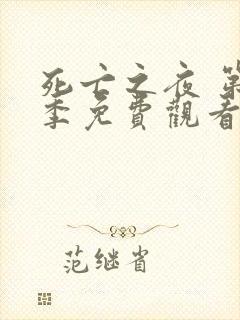 死亡之夜 第
季免費觀看
范继省